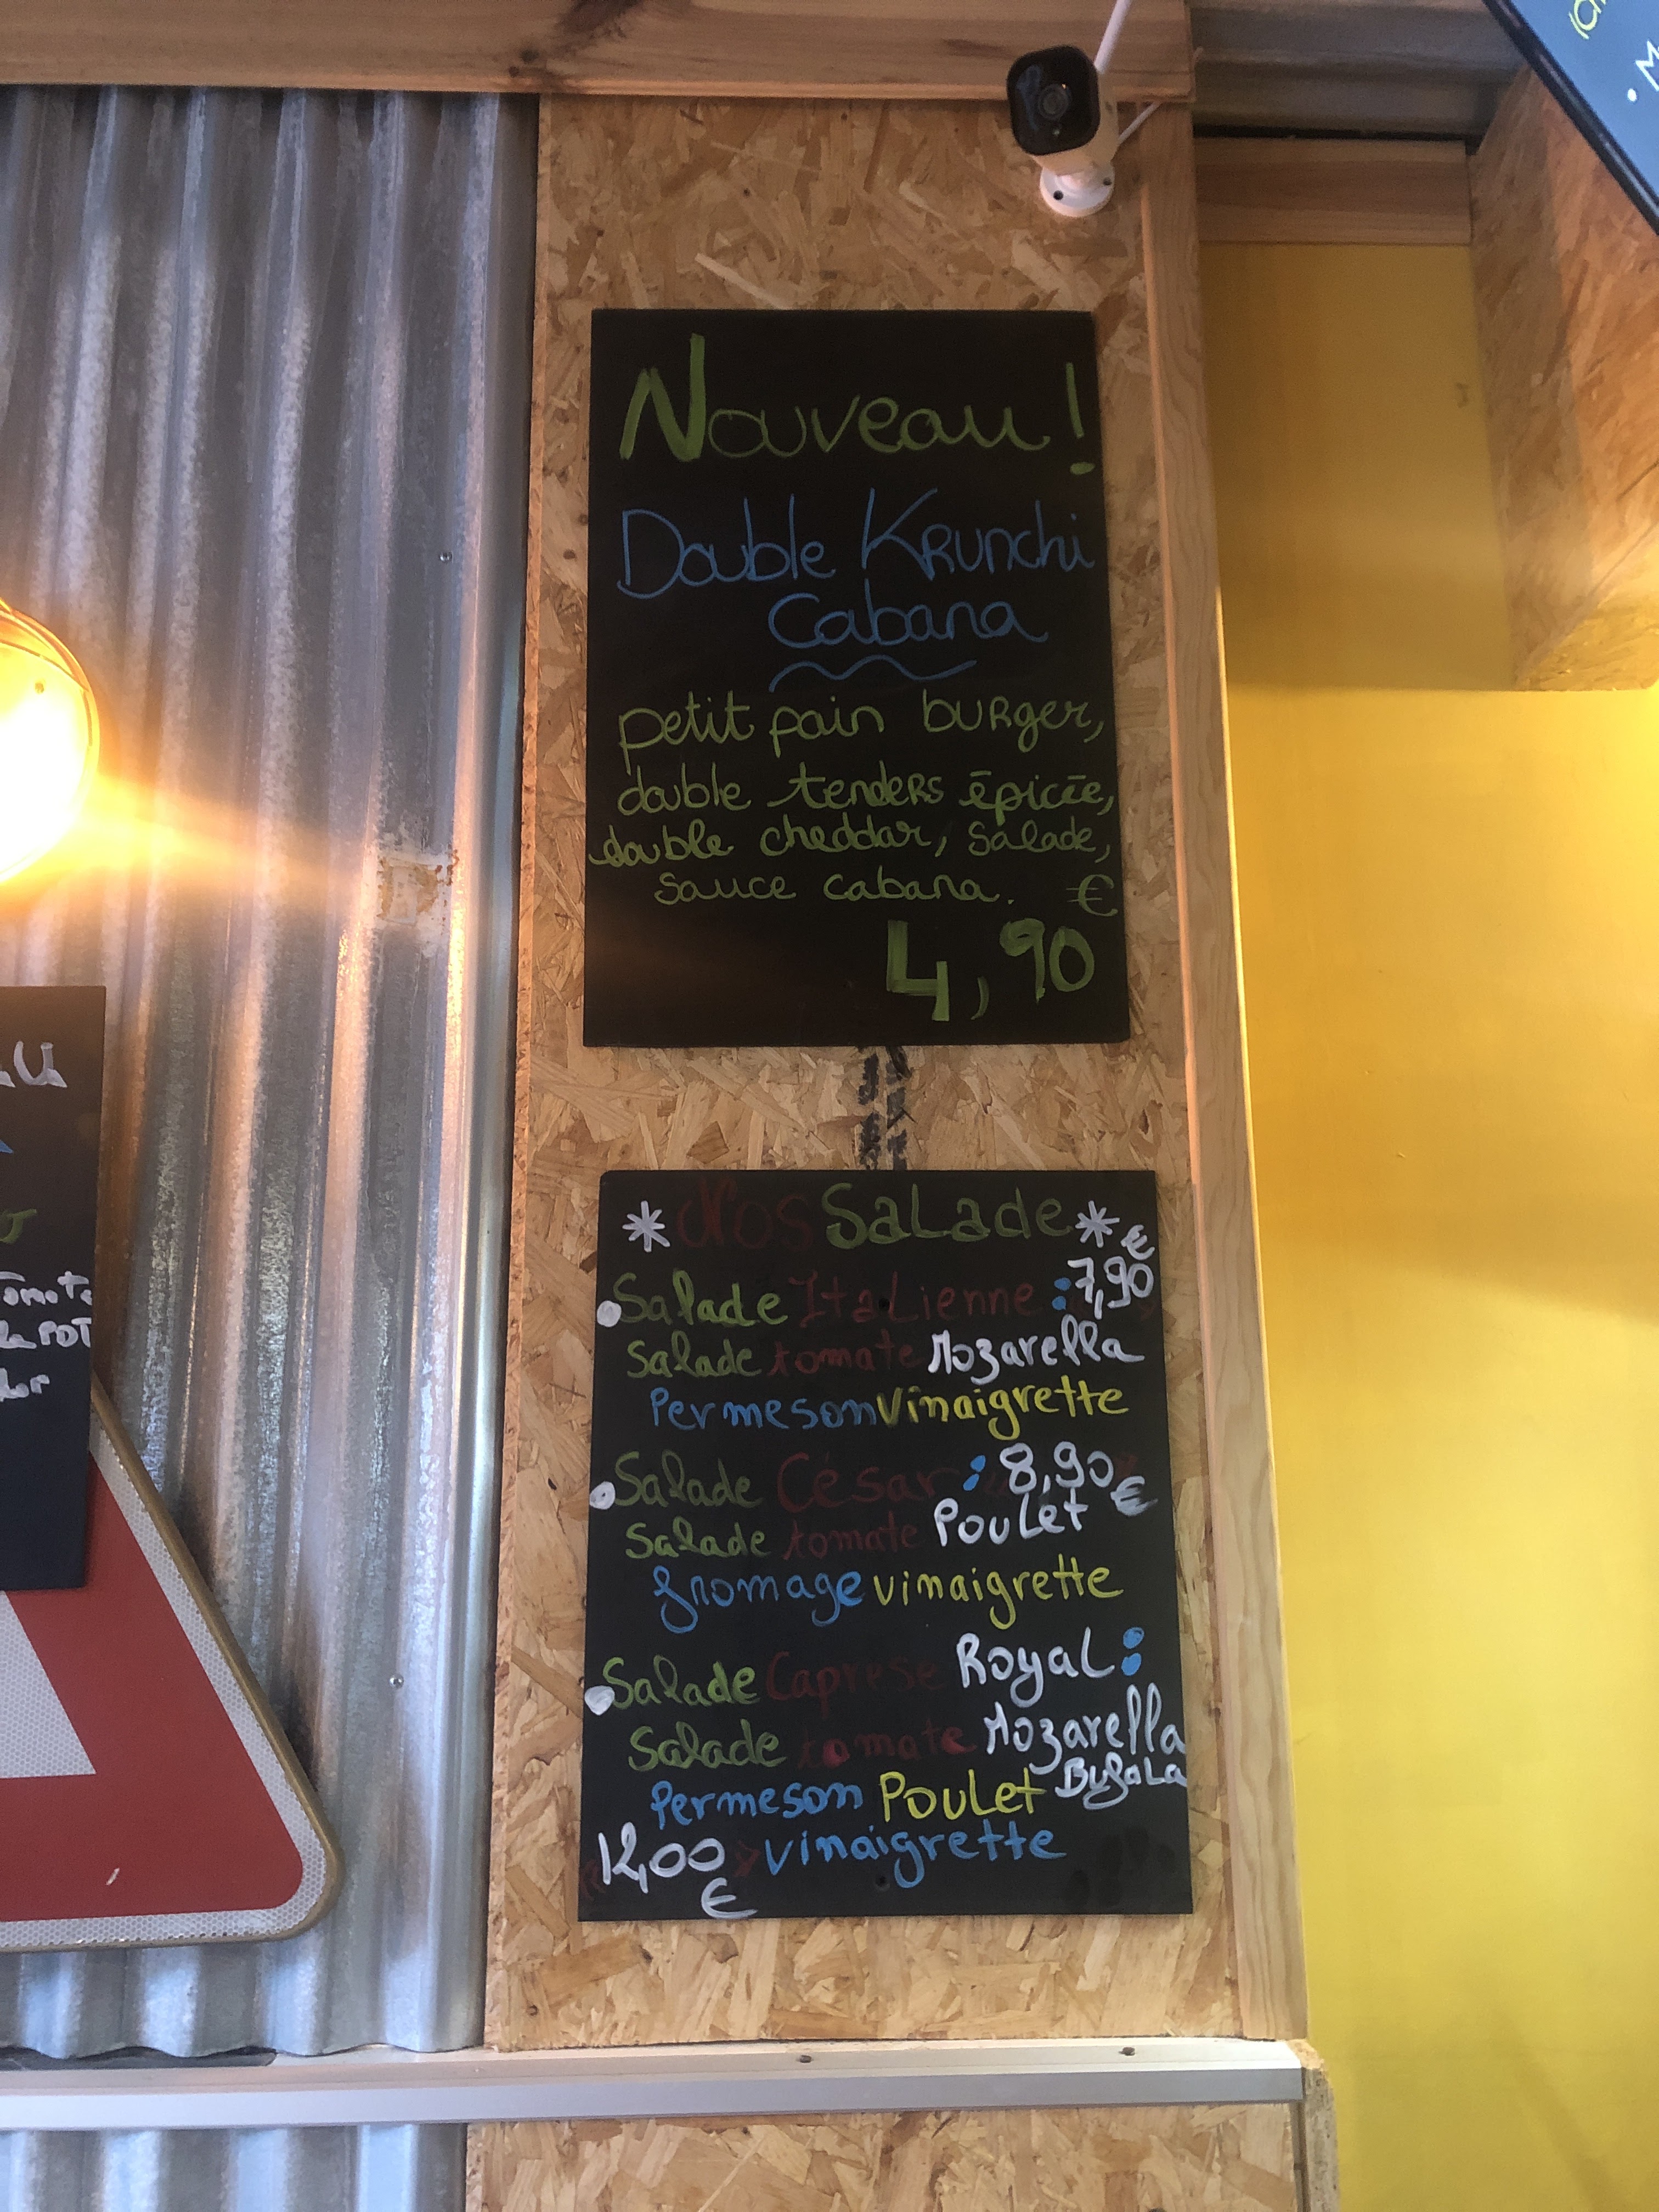 Nouveau !
Double Krunchi
Cabana
petit pain burger,
double tenders épicée,
double cheddar, salade,
sauce cabana. €
4,90
* Nos Salade *
€
Salade Italienne : 7,90
Salade tomate Mozarella
Permeson Vinaigrette
Salade César : 8,90
€
Salade tomate Poulet
fromage vinaigrette
Salade Caprese Royal :
Salade tomate Mozarella
Bufala
Permeson Poulet
12,00 vinaigrette
€